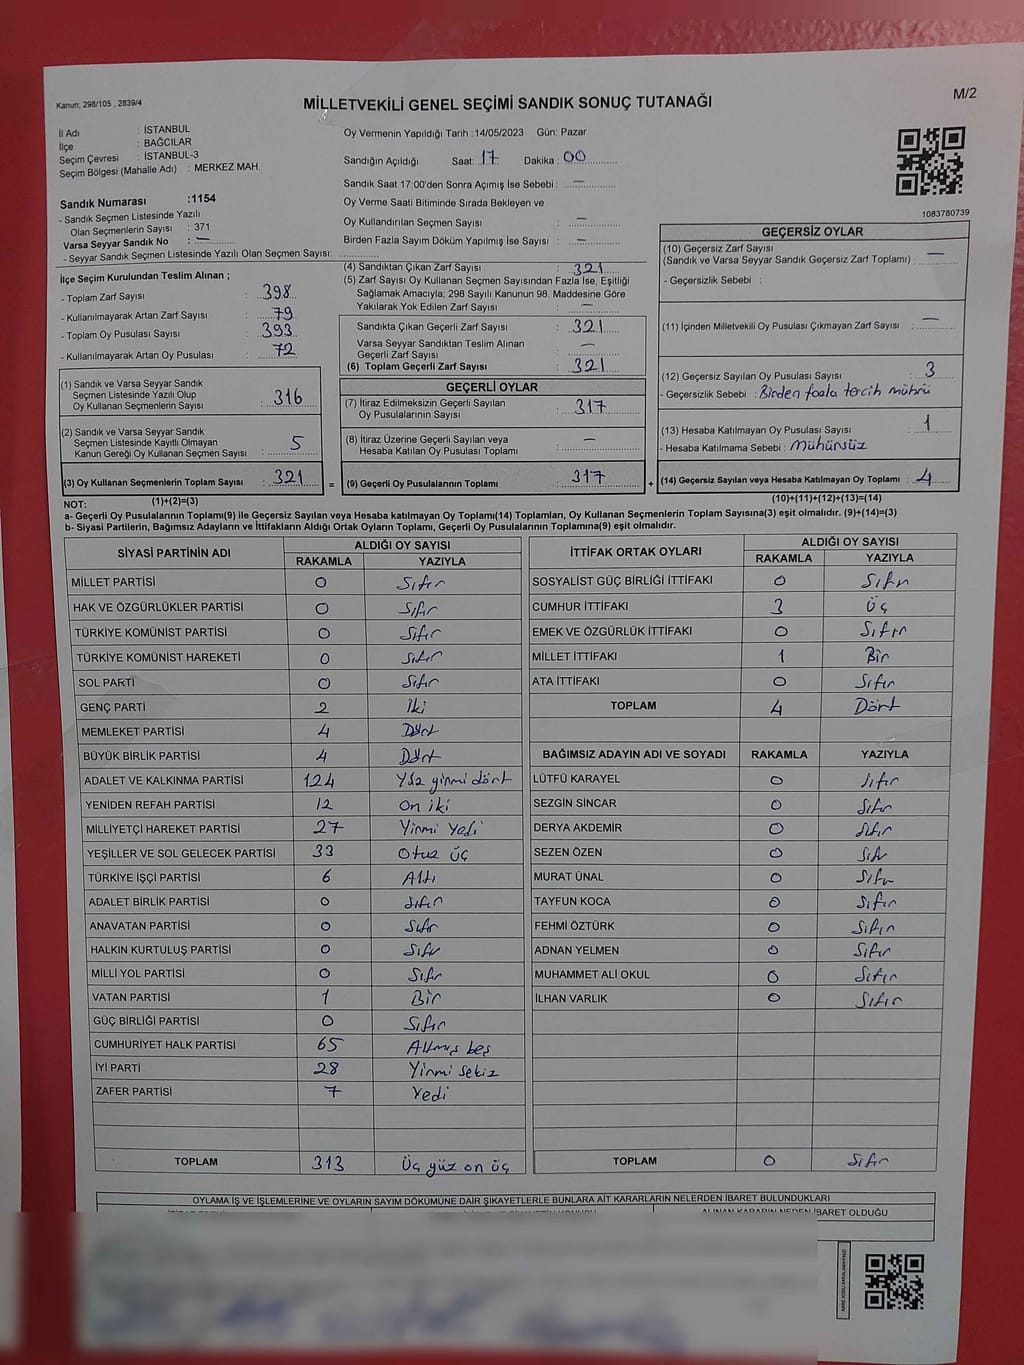 Kanun; 298/105 , 2839/4
MİLLETVEKİLİ GENEL SEÇİMİ SANDIK SONUÇ TUTANAĞI
M/2
İl Adı : İSTANBUL
İlçe : BAĞCILAR
Seçim Çevresi : İSTANBUL-3
Seçim Bölgesi (Mahalle Adı) : MERKEZ MAH.
Sandık Numarası :1154
- Sandık Seçmen Listesinde Yazılı
Olan Seçmenlerin Sayısı : 371
Varsa Seyyar Sandık No : —
- Seyyar Sandık Seçmen Listesinde Yazılı Olan Seçmen Sayısı:
Oy Vermenin Yapıldığı Tarih :14/05/2023 Gün: Pazar
Sandığın Açıldığı Saat: 17 Dakika : 00
Sandık Saat 17:00'den Sonra Açımış İse Sebebi : —
Oy Verme Saati Bitiminde Sırada Bekleyen ve
Oy Kullandırılan Seçmen Sayısı : —
Birden Fazla Sayım Döküm Yapılmış İse Sayısı : —
1083780739
İlçe Seçim Kurulundan Teslim Alınan ;
- Toplam Zarf Sayısı : 398
- Kullanılmayarak Artan Zarf Sayısı : 79
- Toplam Oy Pusulası Sayısı : 393
- Kullanılmayarak Artan Oy Pusulası : 72
(1) Sandık ve Varsa Seyyar Sandık
Seçmen Listesinde Yazılı Olup
Oy Kullanan Seçmenlerin Sayısı : 316
(2) Sandık ve Varsa Seyyar Sandık
Seçmen Listesinde Kayıtlı Olmayan
Kanun Gereği Oy Kullanan Seçmen Sayısı : 5
(3) Oy Kullanan Seçmenlerin Toplam Sayısı : 321
(4) Sandıktan Çıkan Zarf Sayısı : 321
(5) Zarf Sayısı Oy Kullanan Seçmen Sayısından Fazla İse, Eşitliği
Sağlamak Amacıyla; 298 Sayılı Kanunun 98. Maddesine Göre
Yakılarak Yok Edilen Zarf Sayısı : —
Sandıkta Çıkan Geçerli Zarf Sayısı : 321
Varsa Seyyar Sandıktan Teslim Alınan
Geçerli Zarf Sayısı : —
(6) Toplam Geçerli Zarf Sayısı : 321
GEÇERLİ OYLAR
(7) İtiraz Edilmeksizin Geçerli Sayılan
Oy Pusulalarının Sayısı : 317
(8) İtiraz Üzerine Geçerli Sayılan veya
Hesaba Katılan Oy Pusulası Toplamı : —
= (9) Geçerli Oy Pusulalarının Toplamı : 317
GEÇERSİZ OYLAR
(10) Geçersiz Zarf Sayısı
(Sandık ve Varsa Seyyar Sandık Geçersiz Zarf Toplamı) : —
- Geçersizlik Sebebi :
(11) İçinden Milletvekili Oy Pusulası Çıkmayan Zarf Sayısı : —
(12) Geçersiz Sayılan Oy Pusulası Sayısı : 3
- Geçersizlik Sebebi : Birden fazla tercih mührü
(13) Hesaba Katılmayan Oy Pusulası Sayısı : 1
- Hesaba Katılmama Sebebi : Mühürsüz
+ (14) Geçersiz Sayılan veya Hesaba Katılmayan Oy Toplamı : 4
NOT: (1)+(2)=(3) (10)+(11)+(12)+(13)=(14)
a- Geçerli Oy Pusulaları Toplamı(9) ile Geçersiz Sayılan veya Hesaba katılmayan Oy Toplamı(14) Toplamları, Oy Kullanan Seçmenlerin Toplam Sayısına(3) eşit olmalıdır. (9)+(14)=(3)
b- Siyasi Partilerin, Bağımsız Adayların ve İttifakların Aldığı Ortak Oyların Toplamı, Geçerli Oy Pusulalarının Toplamına(9) eşit olmalıdır.
SİYASİ PARTİNİN ADI ALDIĞI OY SAYISI
RAKAMLA YAZIYLA
MİLLET PARTİSİ 0 Sıfır
HAK VE ÖZGÜRLÜKLER PARTİSİ 0 Sıfır
TÜRKİYE KOMÜNİST PARTİSİ 0 Sıfır
TÜRKİYE KOMÜNİST HAREKETİ 0 Sıfır
SOL PARTİ 0 Sıfır
GENÇ PARTİ 2 İki
MEMLEKET PARTİSİ 4 Dört
BÜYÜK BİRLİK PARTİSİ 4 Dört
ADALET VE KALKINMA PARTİSİ 124 Yüz yirmi dört
YENİDEN REFAH PARTİSİ 12 On iki
MİLLİYETÇİ HAREKET PARTİSİ 27 Yirmi Yedi
YEŞİLLER VE SOL GELECEK PARTİSİ 33 Otuz üç
TÜRKİYE İŞÇİ PARTİSİ 6 Altı
ADALET BİRLİK PARTİSİ 0 Sıfır
ANAVATAN PARTİSİ 0 Sıfır
HALKIN KURTULUŞ PARTİSİ 0 Sıfır
MİLLİ YOL PARTİSİ 0 Sıfır
VATAN PARTİSİ 1 Bir
GÜÇ BİRLİĞİ PARTİSİ 0 Sıfır
CUMHURİYET HALK PARTİSİ 65 Altmış beş
İYİ PARTİ 28 Yirmi sekiz
ZAFER PARTİSİ 7 Yedi
TOPLAM 313 Üç yüz on üç
İTTİFAK ORTAK OYLARI ALDIĞI OY SAYISI
RAKAMLA YAZIYLA
SOSYALİST GÜÇ BİRLİĞİ İTTİFAKI 0 Sıfır
CUMHUR İTTİFAKI 3 Üç
EMEK VE ÖZGÜRLÜK İTTİFAKI 0 Sıfır
MİLLET İTTİFAKI 1 Bir
ATA İTTİFAKI 0 Sıfır
TOPLAM 4 Dört
BAĞIMSIZ ADAYIN ADI VE SOYADI RAKAMLA YAZIYLA
LÜTFÜ KARAYEL 0 Sıfır
SEZGİN SİNCAR 0 Sıfır
DERYA AKDEMİR 0 Sıfır
SEZEN ÖZEN 0 Sıfır
MURAT ÜNAL 0 Sıfır
TAYFUN KOCA 0 Sıfır
FEHMİ ÖZTÜRK 0 Sıfır
ADNAN YELMEN 0 Sıfır
MUHAMMET ALİ OKUL 0 Sıfır
İLHAN VARLIK 0 Sıfır
TOPLAM 0 Sıfır
OYLAMA İŞ VE İŞLEMLERİNE VE OYLARIN SAYIM DÖKÜMÜNE DAİR ŞİKAYETLERLE BUNLARA AİT KARARLARIN NELERDEN İBARET BULUNDUKLARI
ALINAN KARARIN NEDEN İBARET OLDUĞU